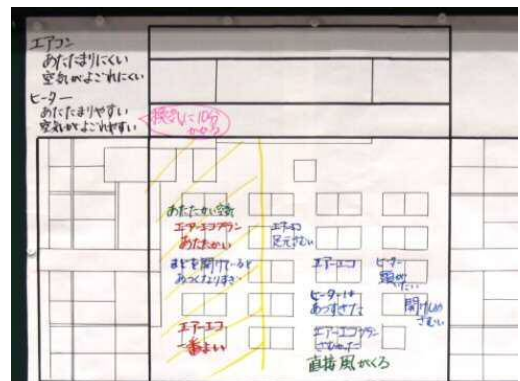 エアコン
あたたまりにくい
空気がよごれにくい
ヒーター
あたたまりやすい
空気がよごれやすい
換気に10分
かかる
あたたかい空気
エアーエコプラン
あたたかい
エアーエコ
足元さむい
まどを開けていると
あつくなりすぎ
エアーエコ
ヒーター
頭がいたい
ヒーターは
あつすぎた
開けしめ
さむい
エアーエコ
一番よい
エアーエコプラン
さむかった
直接風がくる